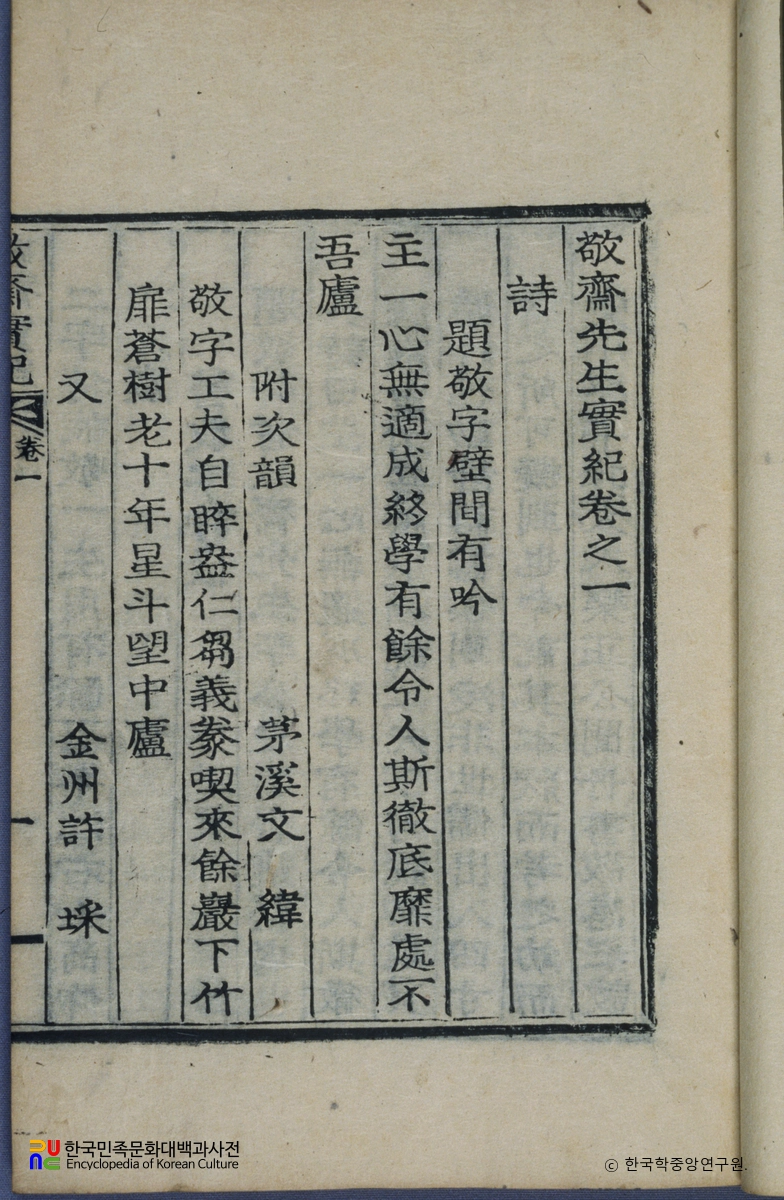 敬齋先生實紀卷之一
詩
題敬字壁間有吟
主一心無適成終學有餘令人斯徹底靡處不
吾廬
附次韻 茅溪文 緯
敬字工夫自睟盎仁芻義豢喫來餘巖下竹
扉蒼樹老十年星斗望中廬
又 金州許 埰
敬齋實紀 卷一 一
한국민족문화대백과사전
Encyclopedia of Korean Culture
ⓒ 한국학중앙연구원.